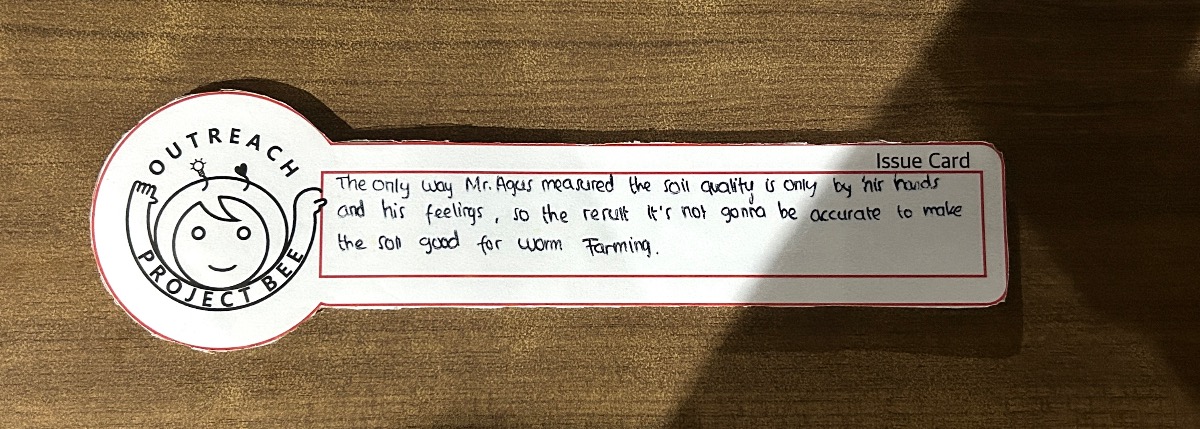 OUTREACH
PROJECT BEE
Issue Card
The only way Mr. Agus measured the soil quality is only by his hands
and his feelings, so the result it's not gonna be accurate to make
the soil good for worm Farming.